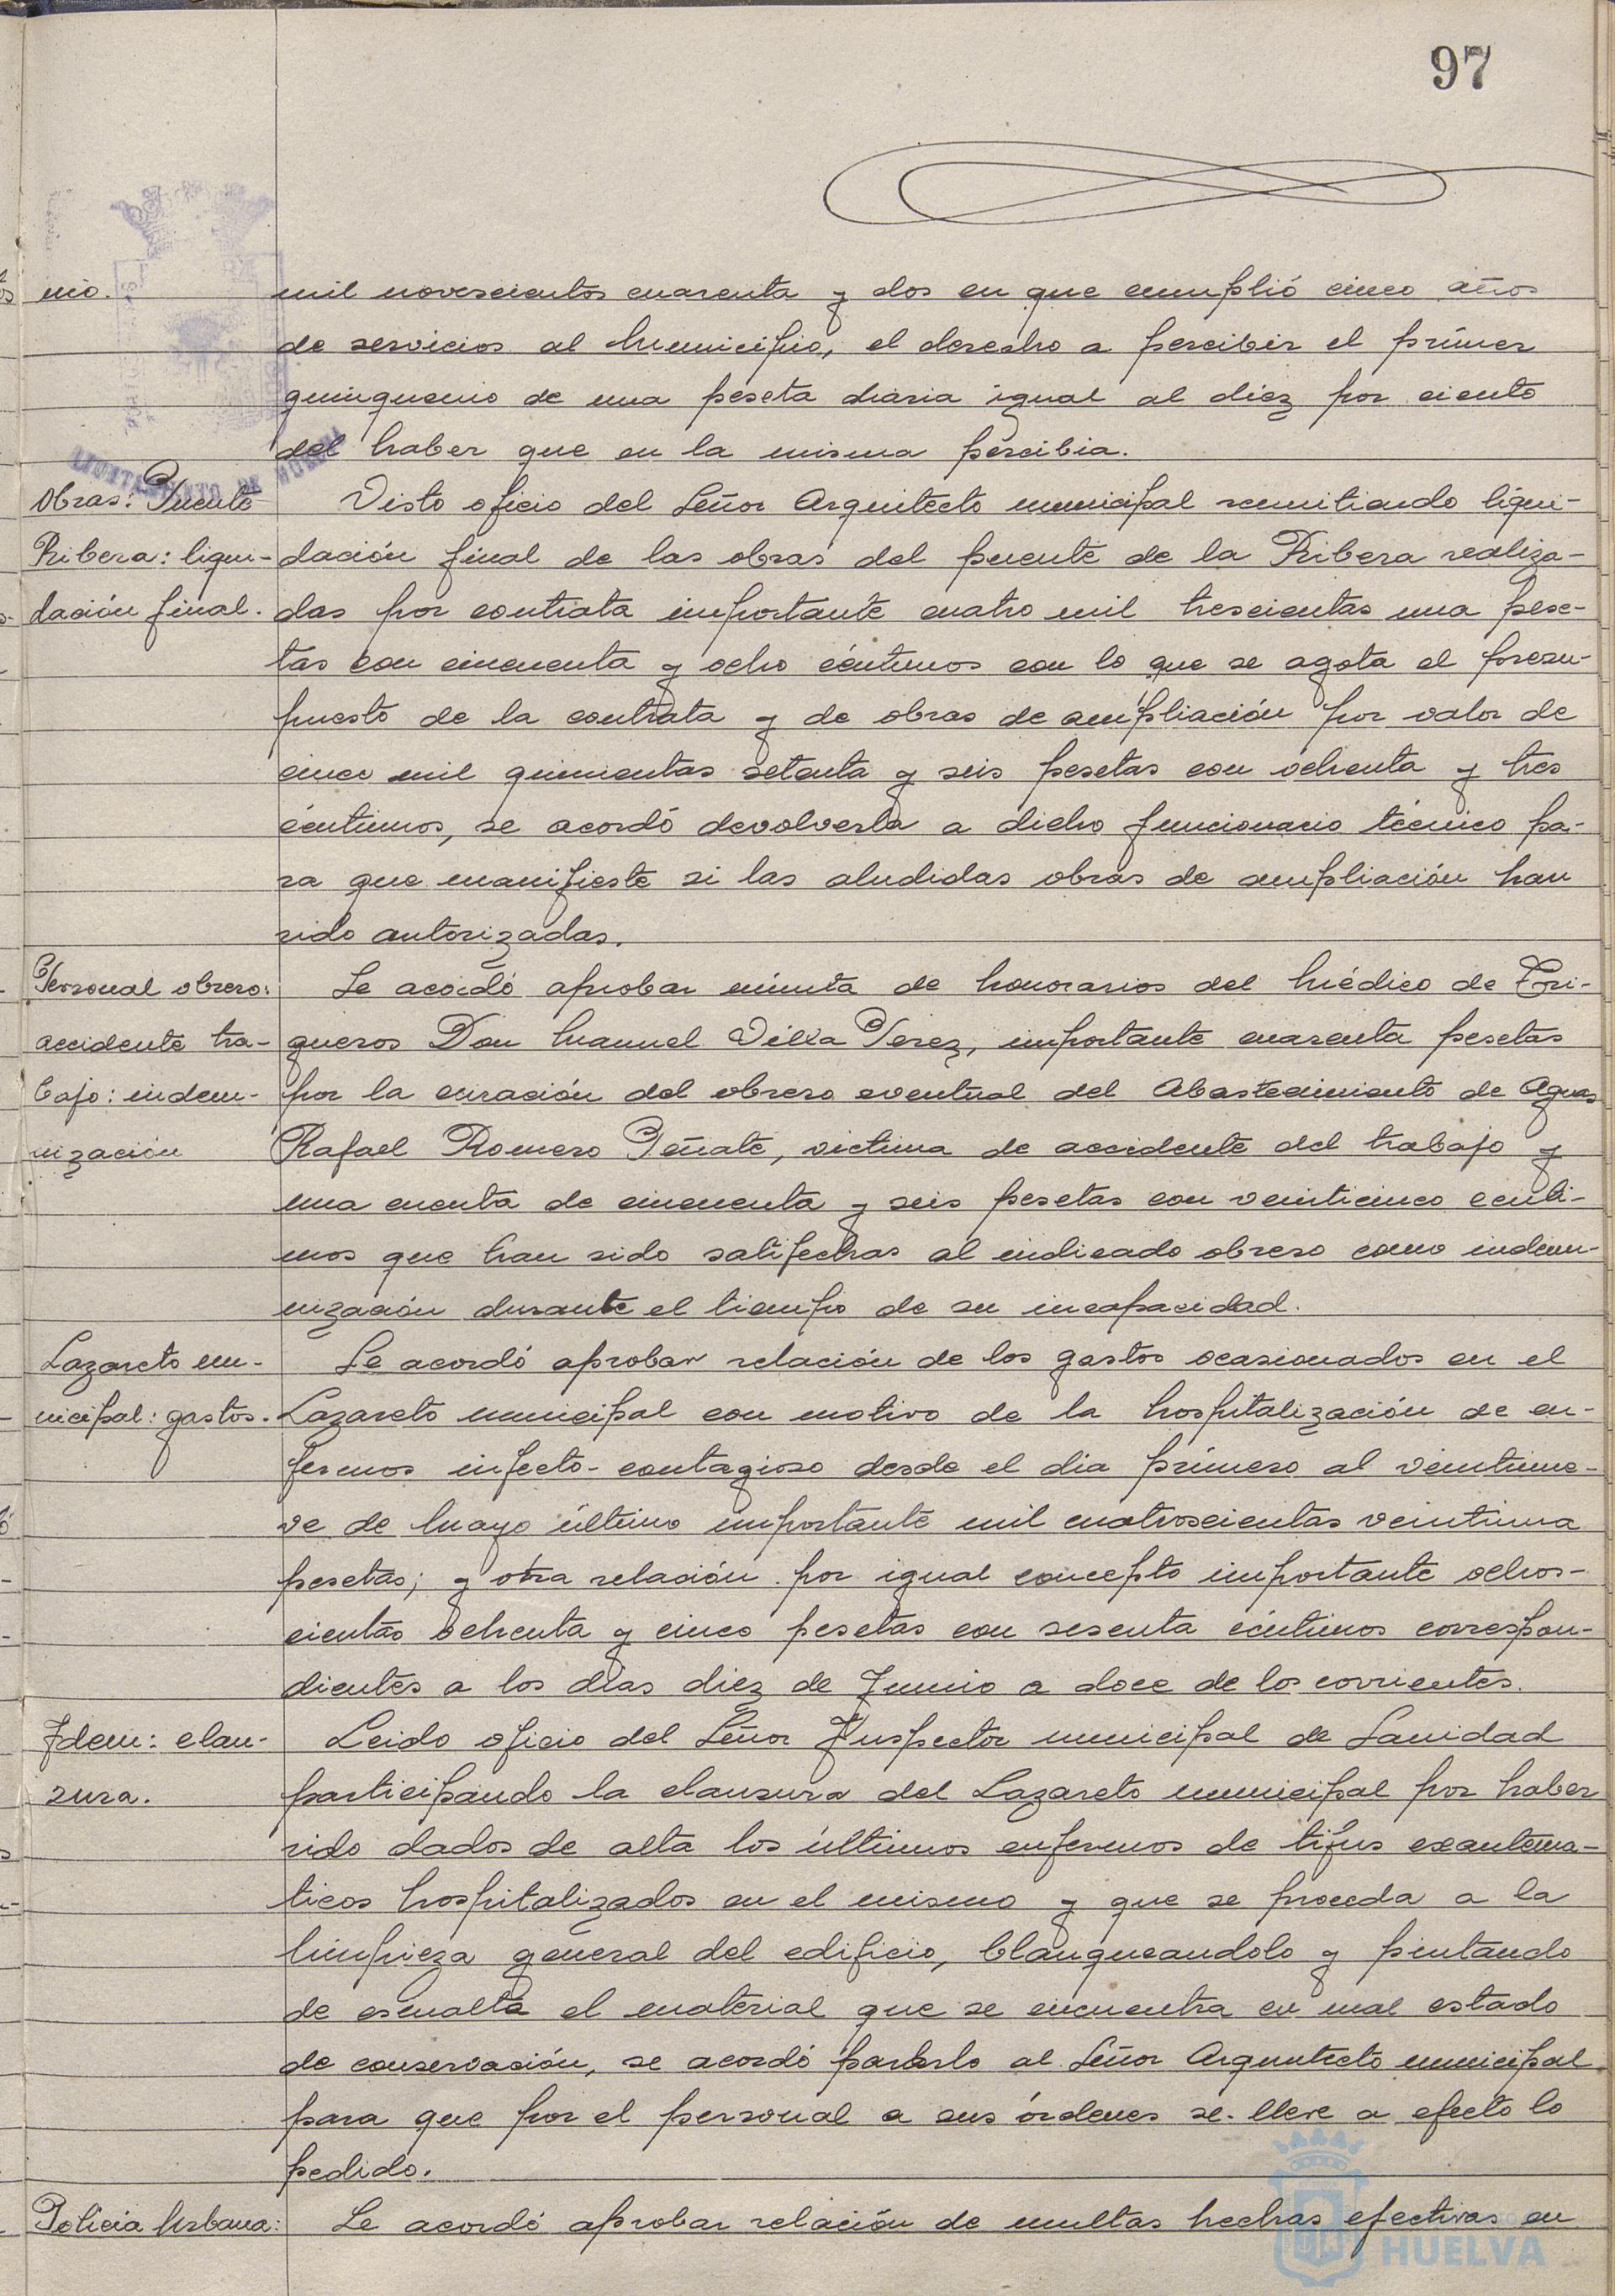 97
nio. mil novescientos cuarenta y dos en que cumplió cinco años
de servicios al Municipio, el derecho a percibir el primer
quinquenio de una peseta diaria igual al diez por ciento
del haber que en la misma percibia.
AYUNTAMIENTO DE HUELVA
Obras: Puente Visto oficio del Señor Arquitecto municipal remitiendo liqui-
Ribera: liqui- dación final de las obras del puente de la Ribera realiza-
dación final. das por contrata importante cuatro mil trescientas una pese-
tas con cincuenta y ocho céntimos con lo que se agota el presu-
puesto de la contrata y de obras de ampliación por valor de
cinco mil quinientas setenta y seis pesetas con ochenta y tres
céntimos, se acordó devolverla a dicho funcionario técnico pa-
ra que manifieste si las aludidas obras de ampliación han
sido autorizadas.
Personal obrero: Se acordó aprobar minuta de honorarios del Médico de Tri-
accidente tra- gueros Don Manuel Vélza Perez, importante cuarenta pesetas
bajo: indem- por la curación del obrero eventual del Abastecimiento de Aguas
nización Rafael Romero Peñate, victima de accidente del trabajo y
una cuenta de cincuenta y seis pesetas con veinticinco cénti-
mos que han sido satifechas al indicado obrero como indem-
nización durante el tiempo de su incapacidad.
Lazareto mu- Se acordó aprobar relación de los gastos ocasionados en el
nicipal: gastos. Lazareto municipal con motivo de la hospitalización de en-
fermos infecto-contagioso desde el dia primero al veintinue-
ve de Mayo último importante mil cuatroscientas veintiuna
pesetas; y otra relación por igual concepto importante ochos-
cientas ochenta y cinco pesetas con sesenta céntimos correspon-
dientes a los días diez de Junio a doce de los corrientes.
Idem: clau- Leido oficio del Señor Inspector municipal de Sanidad
sura. participando la clausura del Lazareto municipal por haber
sido dados de alta los últimos enfermos de tifus exantema-
ticos hospitalizados en el mismo y que se proceda a la
limpieza general del edificio, blanqueandolo y pintando
de esmalte el material que se encuentra en mal estado
de conservación, se acordó pasarlo al Señor Arquitecto municipal
para que por el personal a sus órdenes se lleve a efecto lo
pedido.
Policia Urbana: Se acordó aprobar relación de multas hechas efectivas en
HUELVA